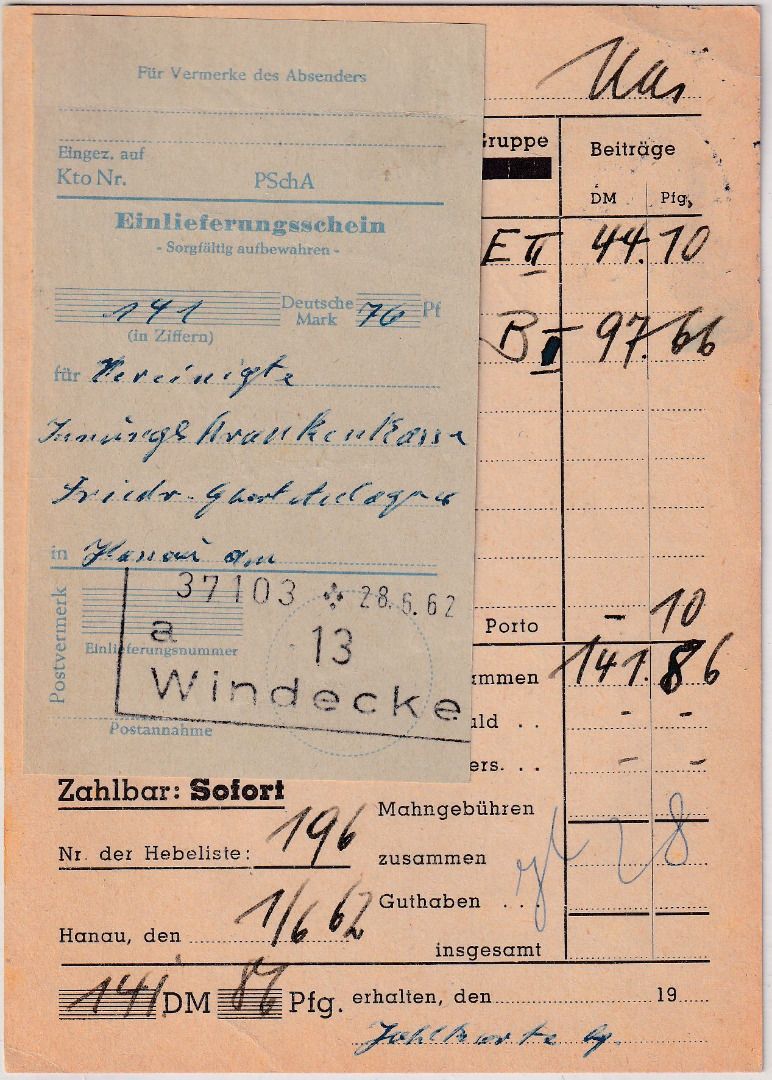 Für Vermerke des Absenders
Eingez. auf
Kto Nr. PSchA
Einlieferungsschein
- Sorgfältig aufbewahren -
141 Deutsche Mark 76 Pf
(in Ziffern)
für Vereinigte
Innungs Krankenkasse
Friedr. Ebert Anlage
in Hanau am
37103 28.6.62
a 13
Windecke
Postvermerk
Einlieferungsnummer
Postannahme
Mai
Gruppe Beiträge
DM Pfg.
E II 44.10
B I 97.66
Porto - 10
ammen 141.86
uld . . - -
ers. . . - -
Zahlbar: Sofort
Mahngebühren
Nr. der Hebeliste: 196
zusammen
28
Guthaben . .
Hanau, den 1/6 62
insgesamt
141. DM 86 Pfg. erhalten, den 19
Zahlkarte